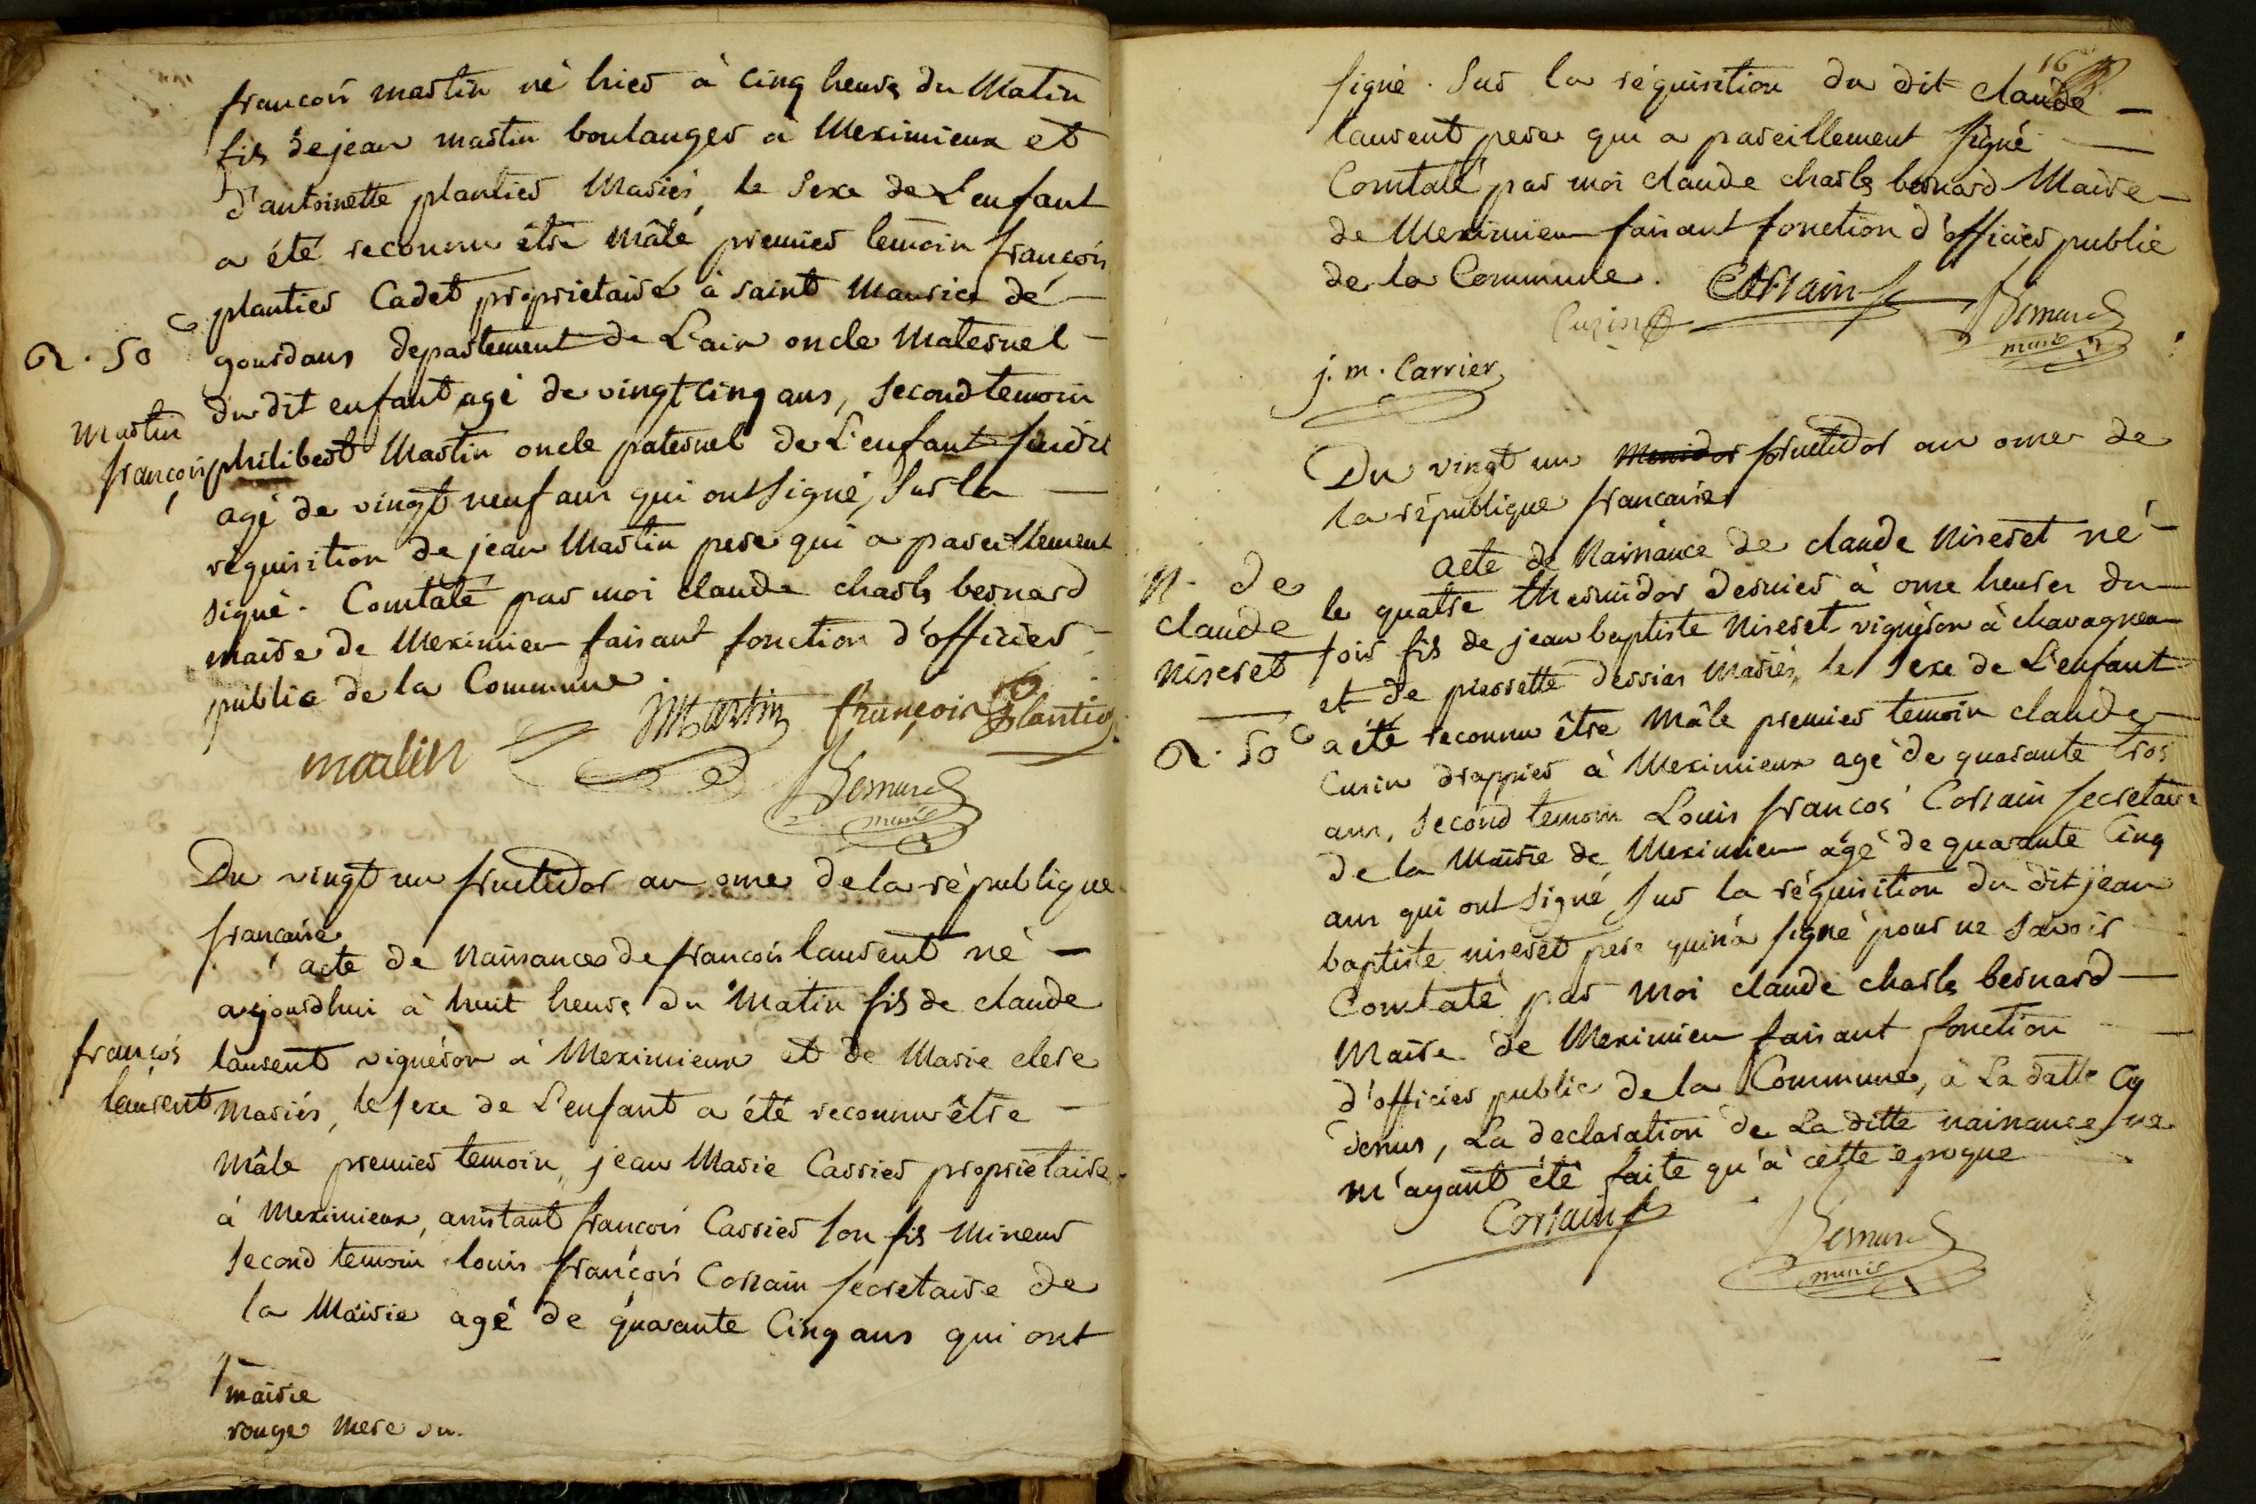 francois martin né hier à cinq heures du Matin
fils de jean martin boulanger à Meximieux et
d'antoinette plantier Mariés, le Sexe de L'enfant
a été reconnu être Mâle premier temoin francois
plantier Cadet proprietaire à saint Maurice de
2. 50 c
gourdans departement de L'ain oncle Maternel
du dit enfant agé de vingt cinq ans, second temoin
Martin
françois
philibert Martin oncle paternel de L'enfant
agé de vingt neuf ans qui ont signé, sur la
réquisition de jean Martin pere qui a pareillement
signé. Constaté par moi claude charles bernard
maire de Meximieu faisant fonction d'officier
public de la Commune.
martin
JMartin
françois Plantier
Bernard
maire
Du vingt un fructidor an onze de la république
francaise
acte de Naissance de francois laurent né
aujourdhui à huit heures du Matin fils de claude
françois
laurent
laurent vigneron à Meximieux et de Marie clere
Mariés, le sexe de L'enfant a été reconnu être
Mâle premier temoin, jean Marie Carrier proprietaire
à Meximieux, assistant francois Carrier son fils Mineur
second temoin louis françois Corsain secretaire de
la Mairie agé de quarante Cinq ans qui ont
mairie
rouge mere
16
signé. Sur la réquisition du dit claude
laurent pere qui a pareillement signé
Constaté par moi claude charles bernard Maire
de Meximieu faisant fonction d'officier public
de la Commune.
Corsain
Cuzin
Bernard
maire
j. m. Carrier
Du vingt un Messidor fructidor an onze de
la république francaise
acte de Naissance de claude Niseret né
N. de
claude
Niseret
le quatre thermidor dernier à onze heures du
soir fils de jean baptiste Niseret vigneron à chavagneu
et de pierrette dessiar Mariés, le Sexe de L'enfant
2. 50 c
a été reconnu être Mâle premier temoin claude
Cusin drappier à Meximieux agé de quarante trois
ans, second temoin Louis francos Corsain secretaire
de la Mairie de Meximieu âgé de quarante Cinq
ans qui ont signé sur la réquisition du dit jean
baptiste niseret pere qui n'a signé pour ne savoir
Constaté par moi claude charles bernard
Maire de Meximieu faisant fonction
d'officier public de la Commune, à La datte Cy
dessus, La declaration de La ditte naissance ne
m'ayant été faite qu'à cette époque
Corsain
Bernard
maire